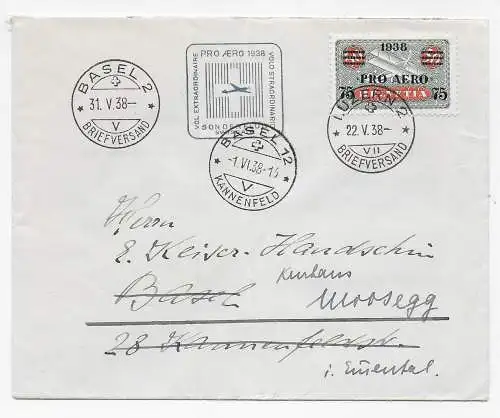 BASEL 2
31. V. 38–
V
BRIEFVERSAND
PRO AERO 1938
VOL EXTRAORDINAIRE
VOLO STRAORDINARIO
SONDER
BASEL 12
-1. VI. 38-1
V
KANNENFELD
1938
PRO AERO
75 HELVETIA 75
LUZERN 2
22. V. 38–
VII
BRIEFVERSAND
Herrn
E. Keiser-Handschin
Kurhaus
Basel Moosegg
28 Kannenfeldstr.
i. Emmental.